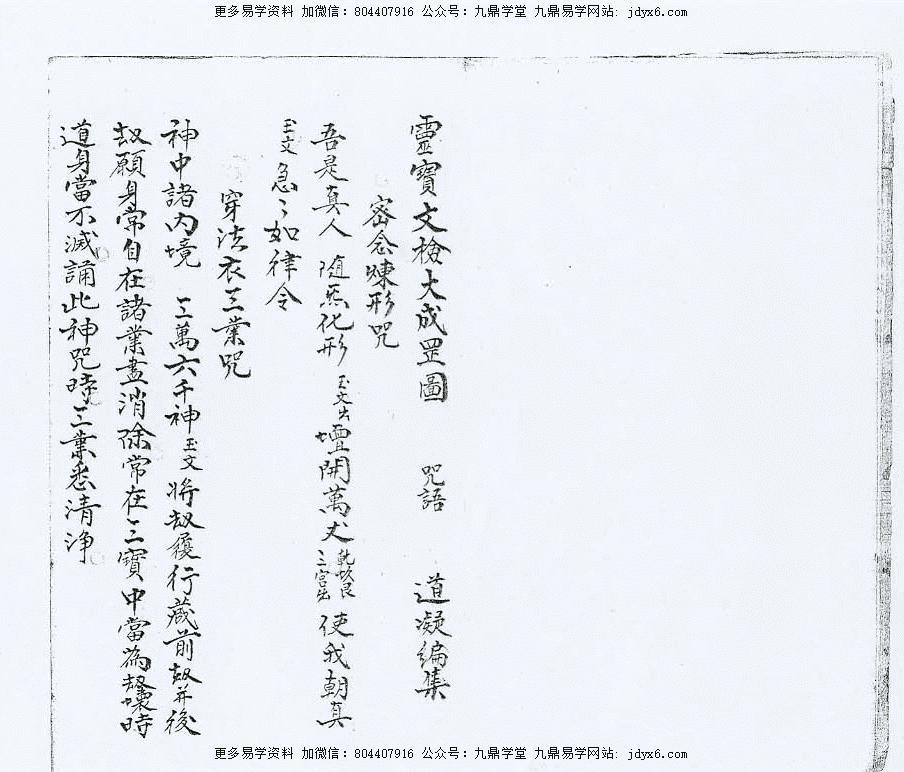 更多易学资料 加微信：804407916 公众号：九鼎学堂 九鼎易学网站: jdyx6.com
靈寶文檢大成罡圖 咒語 道凝編集
密念煉形咒
吾是真人 隨炁化形 玉文出 壇開萬丈 乾坎艮三宮出 使我朝真
玉文 急〻如律令
穿法衣三業咒
神中諸內境 三萬六千神 玉文 將劫履行藏前劫并後
劫願身常自在諸業盡消除常在三寶中當為劫壞時
道身當不滅誦此神咒時三業悉清淨
更多易学资料 加微信：804407916 公众号：九鼎学堂 九鼎易学网站: jdyx6.com